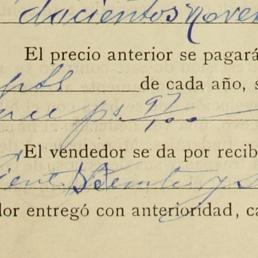 dacientos Nove
El precio anterior se pagará
de cada año, s
ps. 97/100
El vendedor se da por recib
cient Veinte y S
lor entregó con anterioridad, ca